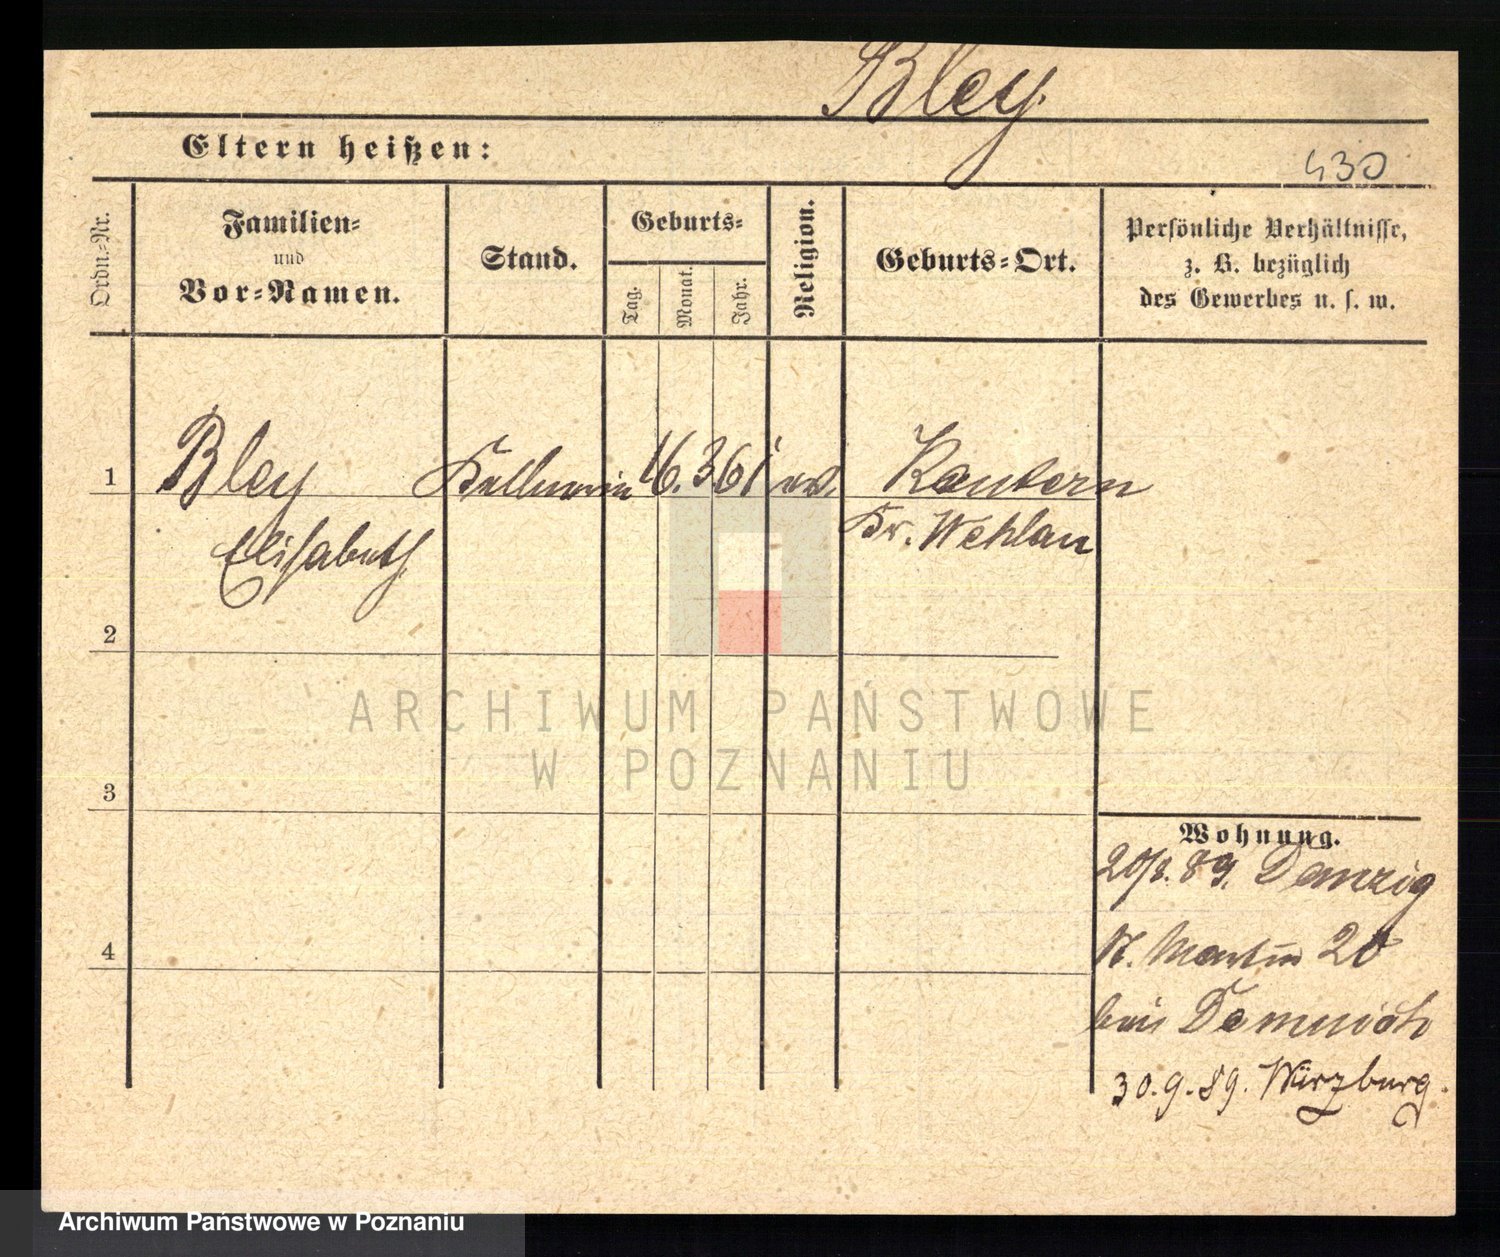 Bley.
Eltern heißen:
430
Ordn.-Nr.
Familien-
und
Vor-Namen.
Stand.
Geburts-
Tag.
Monat.
Jahr.
Religion.
Geburts-Ort.
Persönliche Verhältnisse,
z. B. bezüglich
des Gewerbes u. s. w.
1
Bley Kellnerin 16. 3 61 ev.
Elisabeth
Kr. Wehlau
2
ARCHIWUM PAŃSTWOWE
W POZNANIU
3
Wohnung.
89. Danzig
St. Martin 20
bei
4
30.9.89. Würzburg.
Archiwum Państwowe w Poznaniu